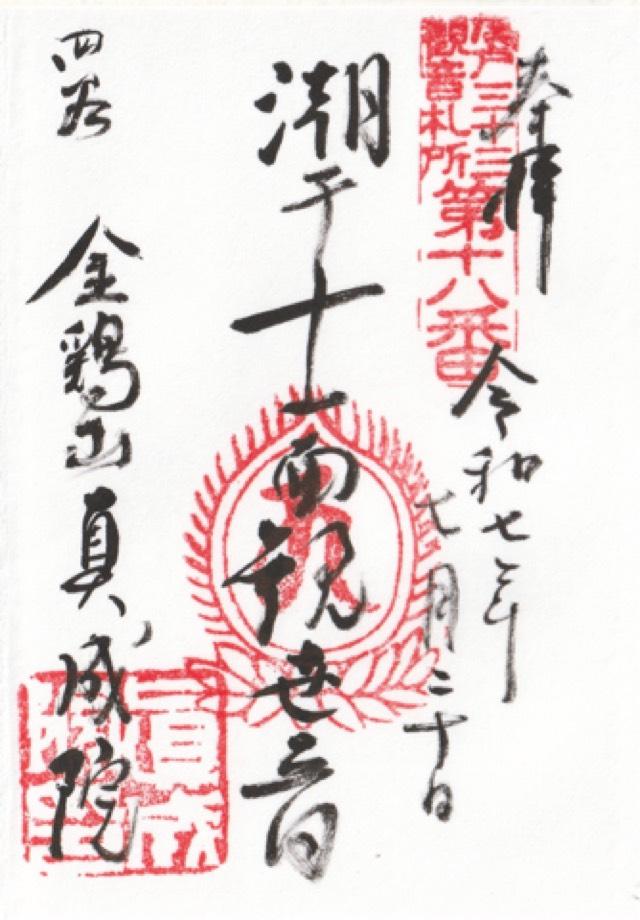 奉拝
江戸三十三
観音札所
第十八番
令和七年
七月二十日
潮干十一面観世音
四谷
金鶏山真成院